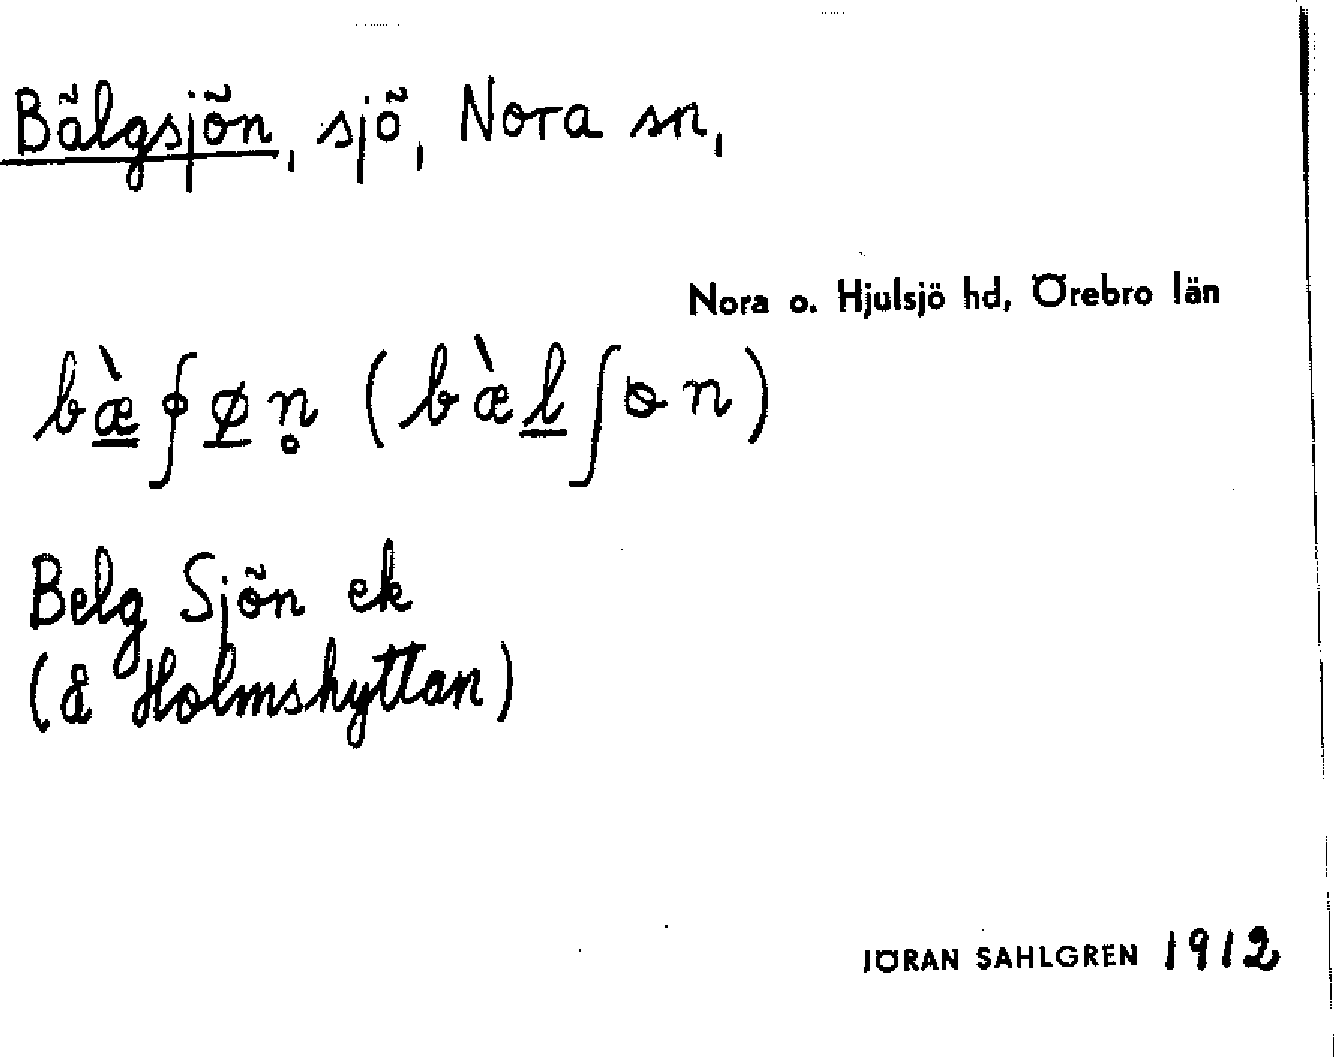 Bälgsjön, sjö, Nora sn,
Nora o. Hjulsjö hd, Örebro län
Belg Sjön ek
(å Holmshyttan)
JÖRAN SAHLGREN 1912